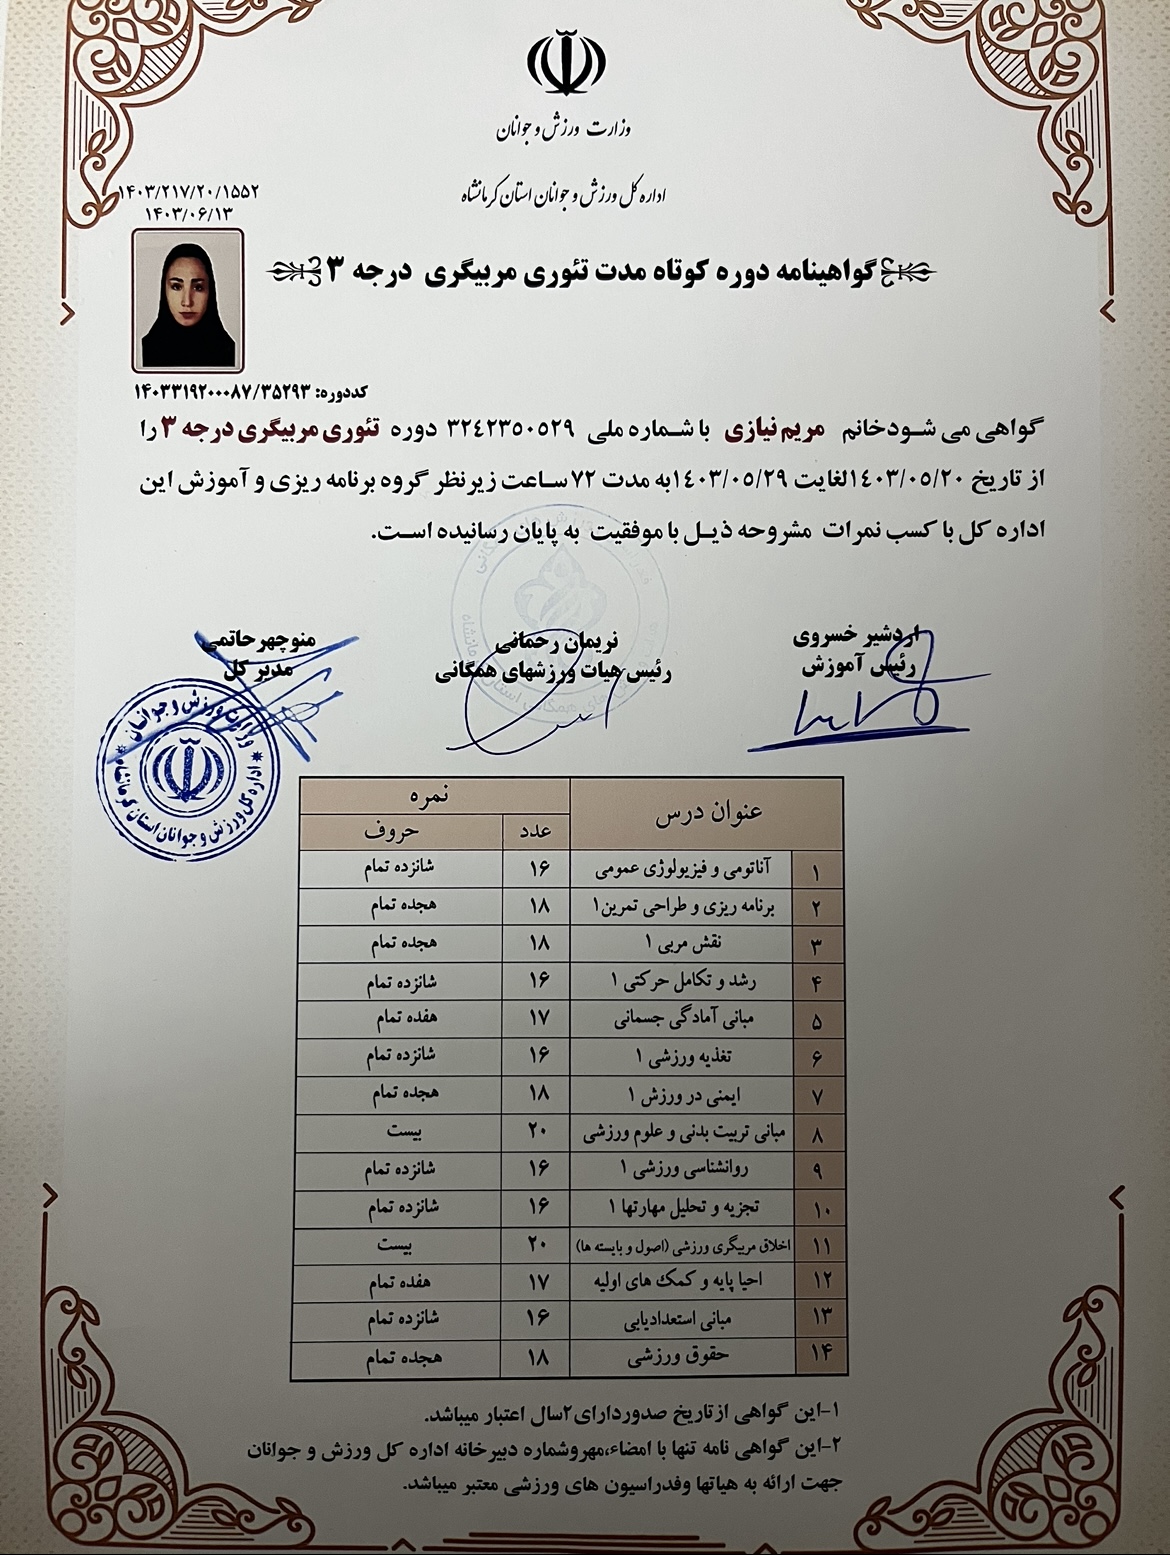 وزارت ورزش و جوانان
اداره کل ورزش و جوانان استان کرمانشاه
۱۴۰۳/۲۱۷/۲۰/۱۵۵۲
۱۴۰۳/۰۶/۱۳
گواهینامه دوره کوتاه مدت تئوری مربیگری درجه ۳
کددوره: ۱۴۰۳۳۱۹۲۰۰۰۸۷/۳۵۲۹۳
گواهی می شـودخانم مریم نیازی با شـماره ملی ۳۲۴۲۳۵۰۵۲۹ دوره تئوری مربیگری درجه ۳ را
از تاریخ ۱۴۰۳/۰۵/۲۰لغایت ۱۴۰۳/۰۵/۲۹به مدت ۷۲سـاعت زیرنظر گروه برنامه ریزی و آموزش این
اداره کل با کسب نمرات مشروحه ذیـل با موفقیت به پایان رسانیده اسـت.
اردشیر خسروی
رئیس آموزش
نریمان رحمانی
رئیس هیات ورزشهای همگانی
منوچهرحاتمی
مدیر کل
وزارت ورزش و جوانان
اداره کل ورزش و جوانان استان کرمانشاه
عنوان درس نمره
عدد حروف
۱ آناتومی و فیزیولوژی عمومی ۱۶ شانزده تمام
۲ برنامه ریزی و طراحی تمرین۱ ۱۸ هجده تمام
۳ نقش مربی ۱ ۱۸ هجده تمام
۴ رشد و تکامل حرکتی ۱ ۱۶ شانزده تمام
۵ مبانی آمادگی جسمانی ۱۷ هفده تمام
۶ تغذیه ورزشی ۱ ۱۶ شانزده تمام
۷ ایمنی در ورزش ۱ ۱۸ هجده تمام
۸ مبانی تربیت بدنی و علوم ورزشی ۲۰ بیست
۹ روانشناسی ورزشی ۱ ۱۶ شانزده تمام
۱۰ تجزیه و تحلیل مهارتها ۱ ۱۶ شانزده تمام
۱۱ اخلاق مربیگری ورزشی (اصول و بایسته ها) ۲۰ بیست
۱۲ احیا پایه و کمک های اولیه ۱۷ هفده تمام
۱۳ مبانی استعدادیابی ۱۶ شانزده تمام
۱۴ حقوق ورزشی ۱۸ هجده تمام
۱-این گواهی ازتاریخ صدوردارای۲سال اعتبار میباشد.
۲-این گواهی نامه تنها با امضاء،مهروشماره دبیرخانه اداره کل ورزش و جوانان
جهت ارائه به هیاتها وفدراسیون های ورزشی معتبر میباشد.